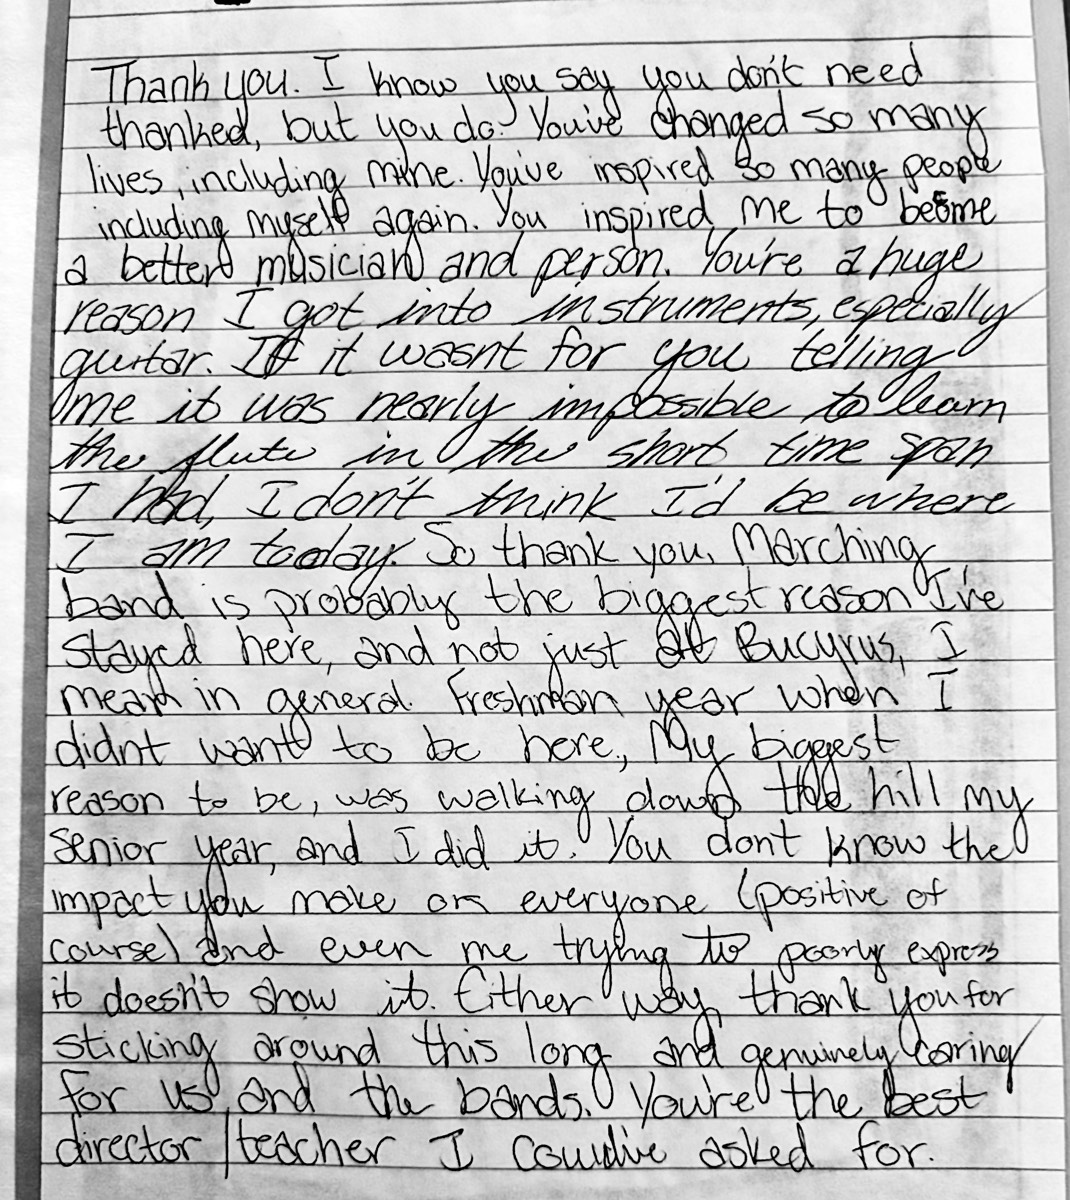 Thank you. I know you say you don't need
thanked, but you do. You've changed so many
lives, including mine. You've inspired so many people
including myself again. You inspired me to become
a better musician and person. You're a huge
reason I got into instruments, especially
guitar. If it wasnt for you telling
me it was nearly impossible to learn
the flute in the short time span
I had, I don't think I'd be where
I am today. So thank you. Marching
band is probably the biggest reason I've
stayed here, and not just at Bucyrus, I
mean in general. Freshman year when I
didnt want to be here, My biggest
reason to be, was walking down the hill my
senior year, and I did it. You dont know the
impact you make on everyone (positive of
course) and even me trying to poorly express
it doesn't show it. Either way, thank you for
sticking around this long and genuinely caring
for us, and the bands. You're the best
director/teacher I could've asked for.